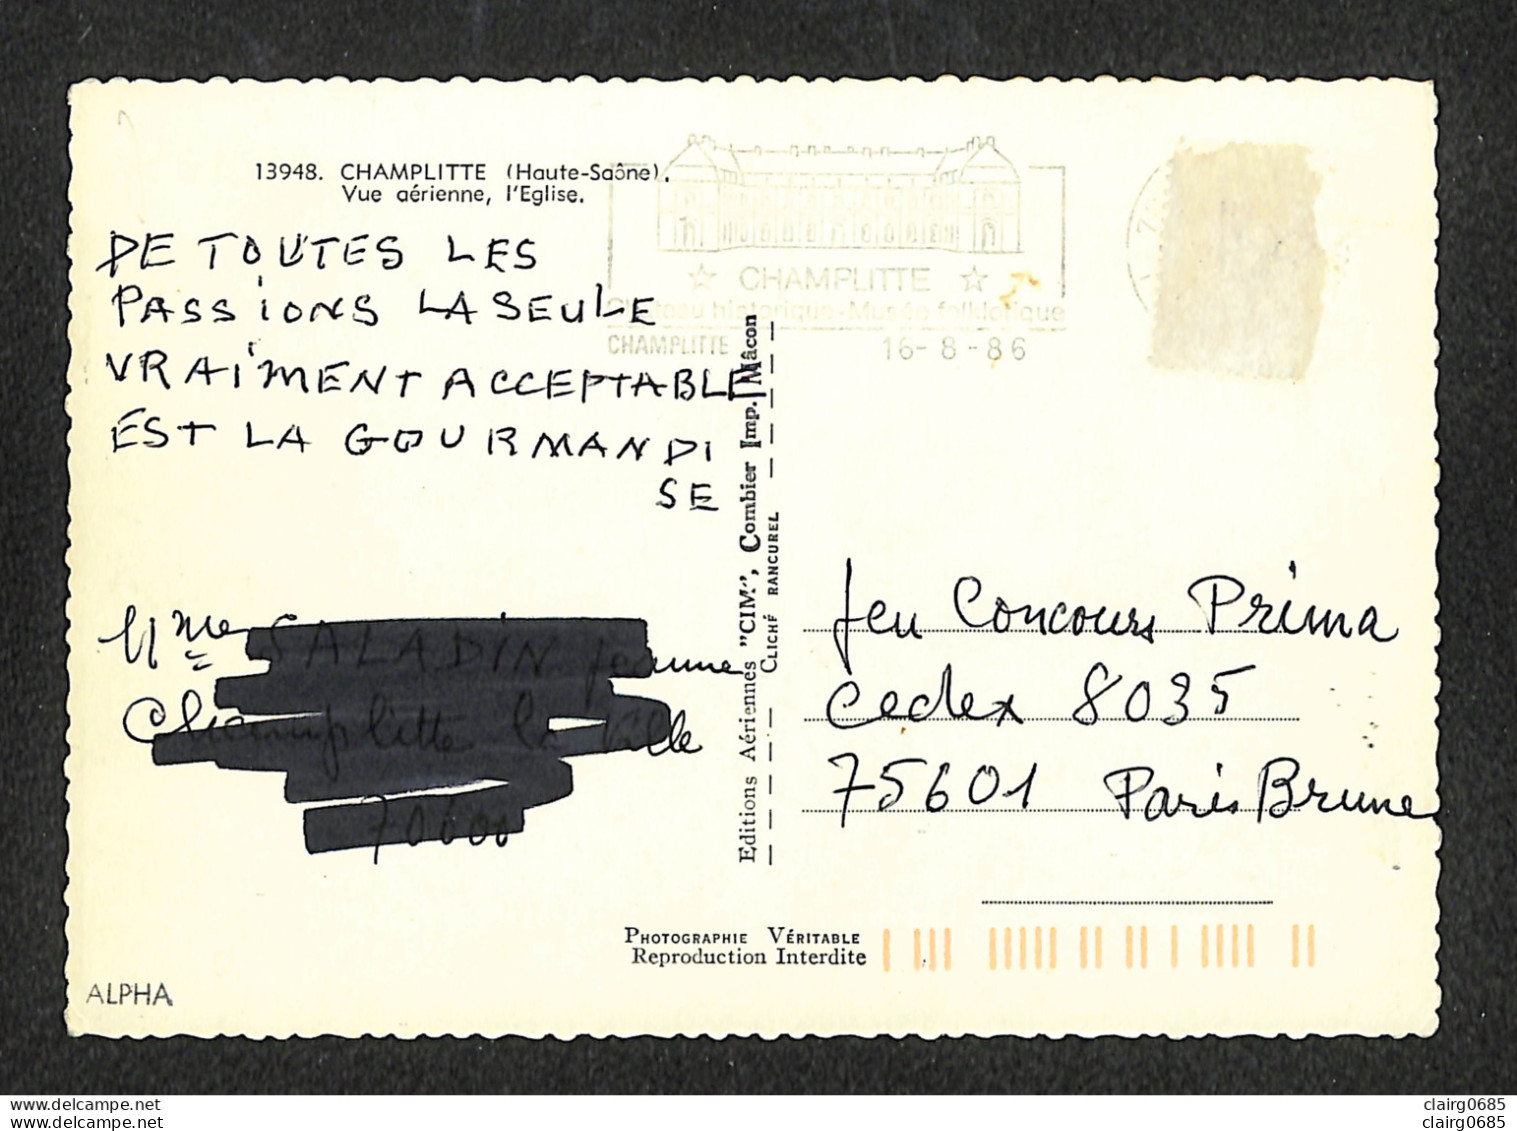 13948. CHAMPLITTE (Haute-Saône).
Vue aérienne, l'Eglise.
DE TOUTES LES
PASSIONS LA SEULE
VRAIMENT ACCEPTABLE
EST LA GOURMANDI
SE
CHAMPLITTE
Château historique - Musée folklorique
CHAMPLITTE 16-8-86
Editions Aériennes "CIM", Combier Imp. Mâcon
CLICHÉ RANCUREL
Mme SALADIN Jeanne
Champlitte la Ville
70600
Jeu Concours Prima
Cedex 8035
75601 Paris Brune
PHOTOGRAPHIE VÉRITABLE
Reproduction Interdite
ALPHA
Delcampe.net
clairg0685
Delcampe.net
clairg0685